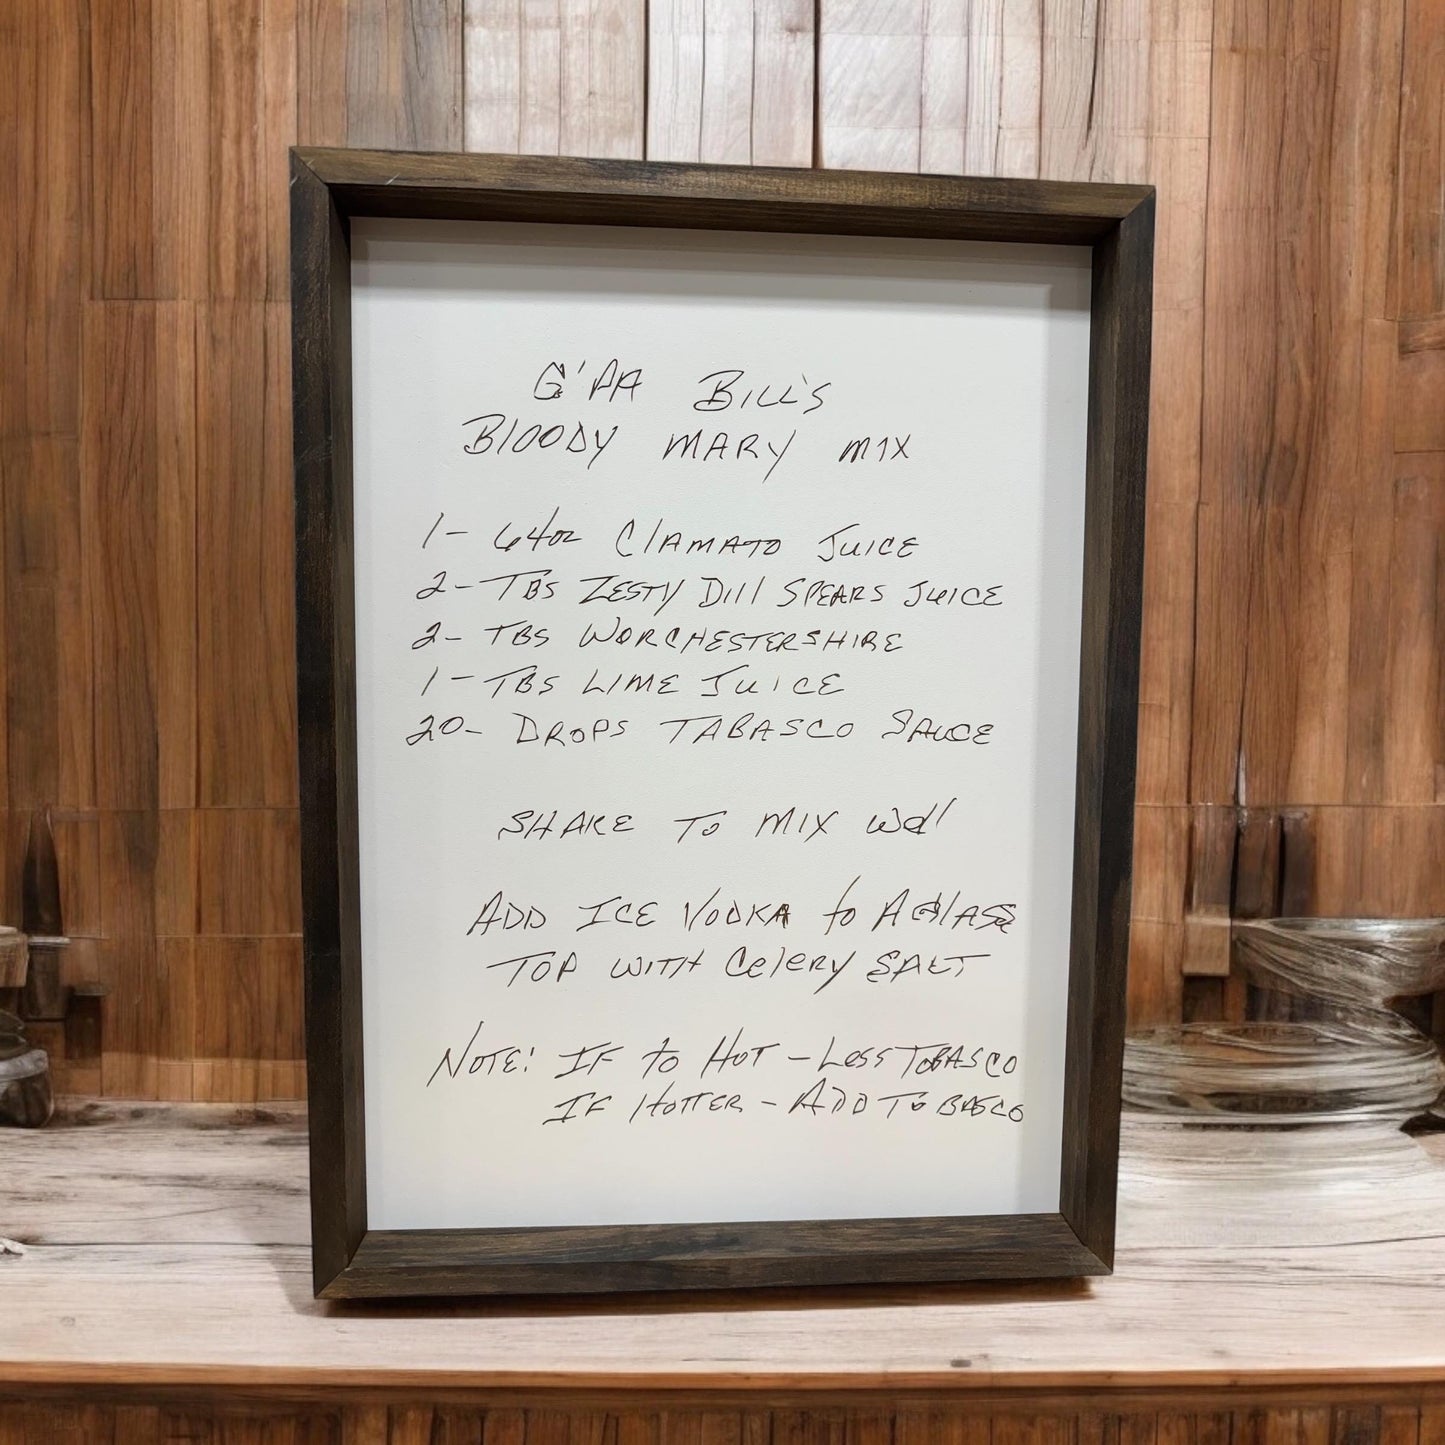 G'PA BILL'S
BlOODY MARY MIX
1- 64oz ClAMATO JUICE
2- TBS ZESTY DIll SPEARS JUICE
2- TBS WORCHESTERSHIRE
1- TBS LIME JUICE
20- DROPS TABASCO SAUCE
SHAKE TO MIX well
ADD ICE VODKA to A GlASS
TOP WITH CelERY SALT
NOTE: IF to HOT - LESS TOBASCO
IF HOTTER - ADD TOBASCO